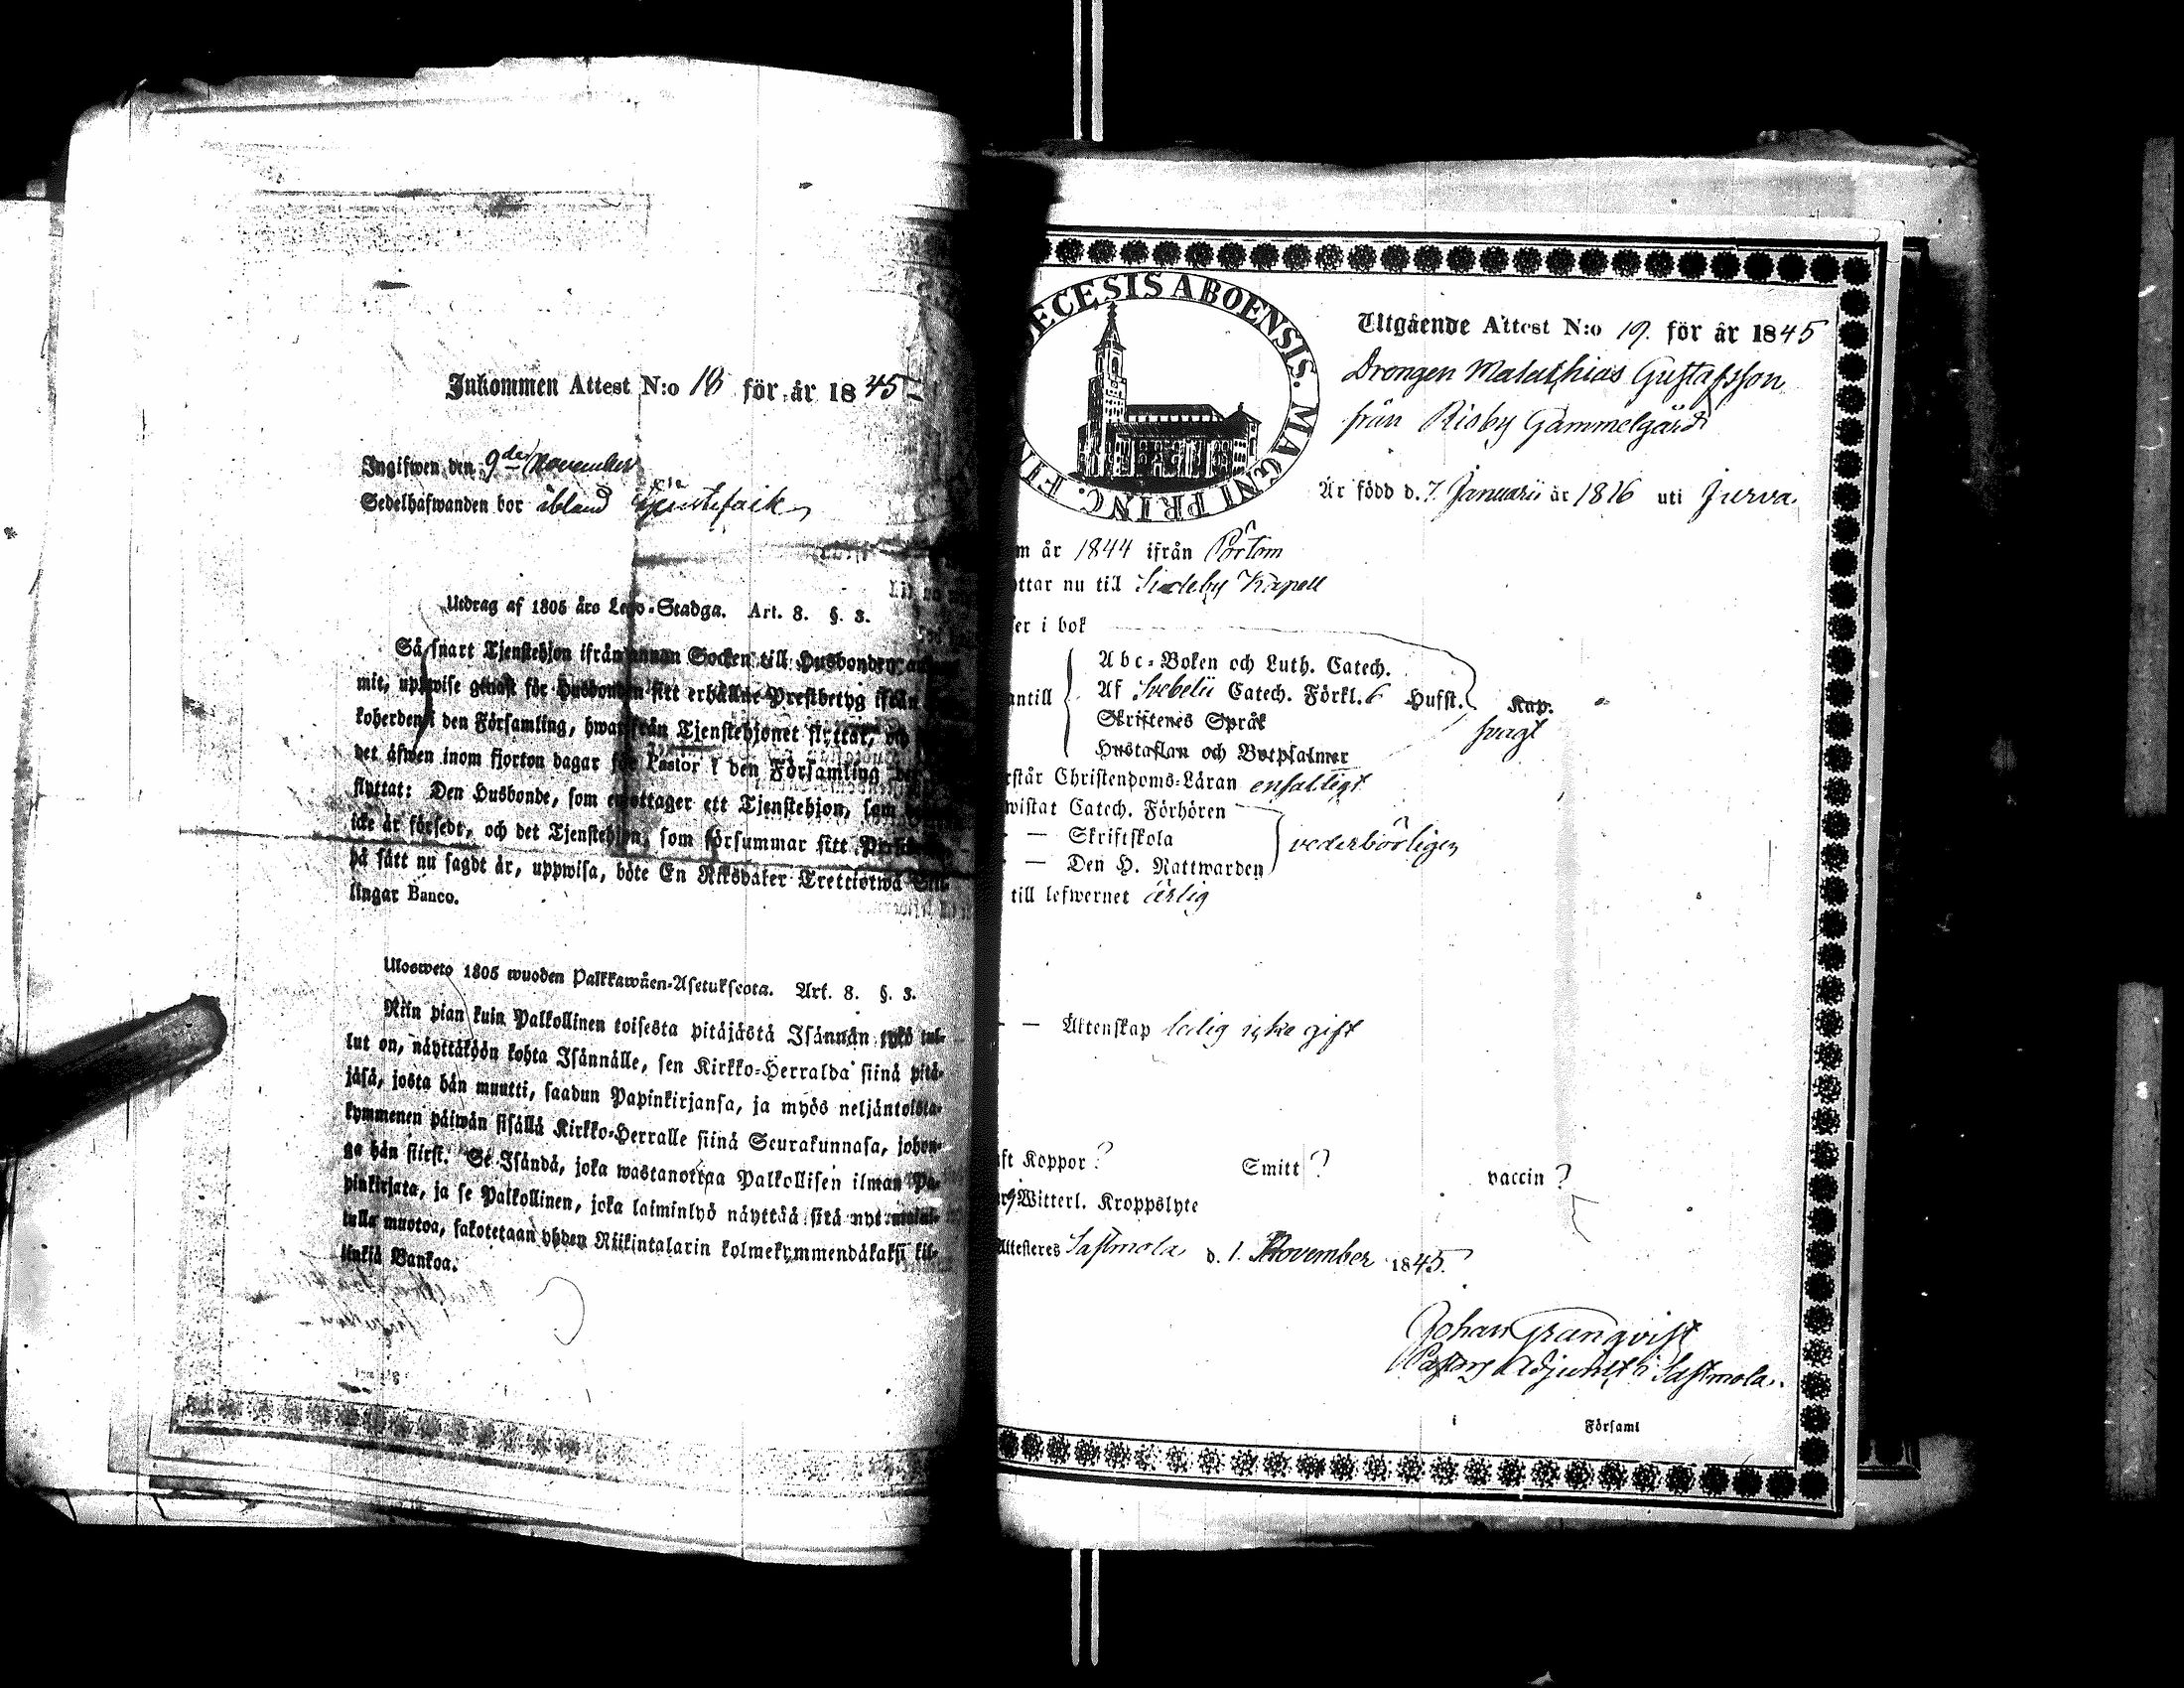 Inkommen Attest N:o 18 för år 1845
Ingifwen den 9de November
Sedelhafwanden bor ibland
Utdrag af 1805 års Lego-Stadga. Art. 8. §. 3.
Så snart Tjenstehjon ifrån annan Socken till Husbonden
mit, uppwise genast för Husbonden sitt erhållne Prestbetyg ifrån
koherden i den Församling, hwarifrån Tjenstehjonet flyttat, och
det äfwen inom fjorton dagar för Pastor i den Församling
flyttat: Den Husbonde, som emottager ett Tjenstehjon, som
icke är försedt, och det Tjenstehjon, som försummar sitt
på sätt nu sagdt är, uppwisa, böte En Riksdaler Trettiotwå Skil-
lingar Banco.
Ulosweto 1805 wuoden Palkkawäen-Asetuksesta. Art. 8. §. 3.
Niin pian kuin Palkollinen toisesta pitäjästä Isännän tykö tul-
lut on, näyttäköön kohta Isännälle, sen Kirkko-Herralda siinä pitä-
jäsä, josta hän muutti, saadun Papinkirjansa, ja myös neljäntoista-
kymmenen päiwän sisällä Kirkko-Herralle siinä Seurakunnasa, johon-
ga hän siirst. Se Isändä, joka wastanottaa Palkollisen ilman Pa-
pinkirjata, ja se Palkollinen, joka laiminlyö näyttää sitä nyt mainit-
tulla muotoa, sakotetaan yhden Riikintalarin kolmekymmendäkaksi kil-
linkiä Bankoa.
ECESIS ABOENSIS. MAGNI PRINC. FI
Utgående Attest N:o 19. för år 1845
Drengen Matthias Gustafsson
från Risby Gammelgård
Är född d. 7 Januarii år 1816 uti Jurva.
m år 1844 ifrån Pörtom
ottar nu till Sideby Kapell
ser i bok
antill
Abc-Boken och Luth. Catech.
Af Svebelii Catech. Förkl. 6 Hufst. Kap.
Skriftenes Språk svagt
Hustaflan och Botpsalmer
rstår Christendoms-Läran enfaldigt
wistat Catech. Förhören
— Skriftskola vederbörligen
— Den H. Nattwarden
till lefwernet ärlig
— — Äktenskap ledig icke gift
aft Koppor ? Smitt ? vaccin ?
Witterl. Kroppslyte
Attesteres Sastmola d. 1. November 1845.
Johan Granqvist
Pastors Adjunct i Sastmola.
i Församl